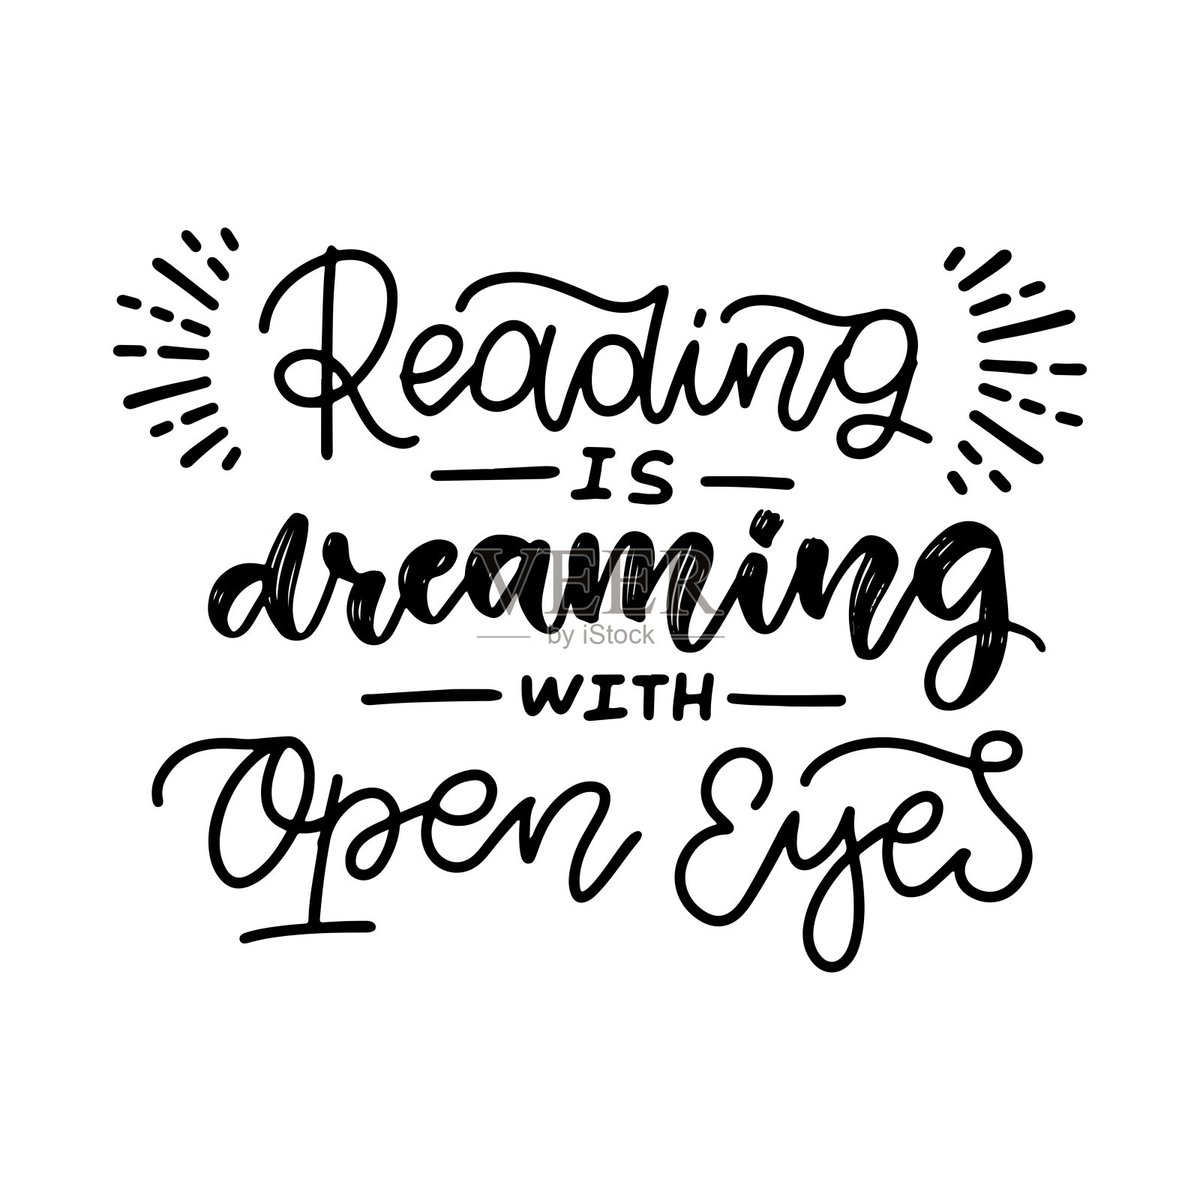 Reading
IS
dreaming
VEER
by iStock
WITH
Open Eyes